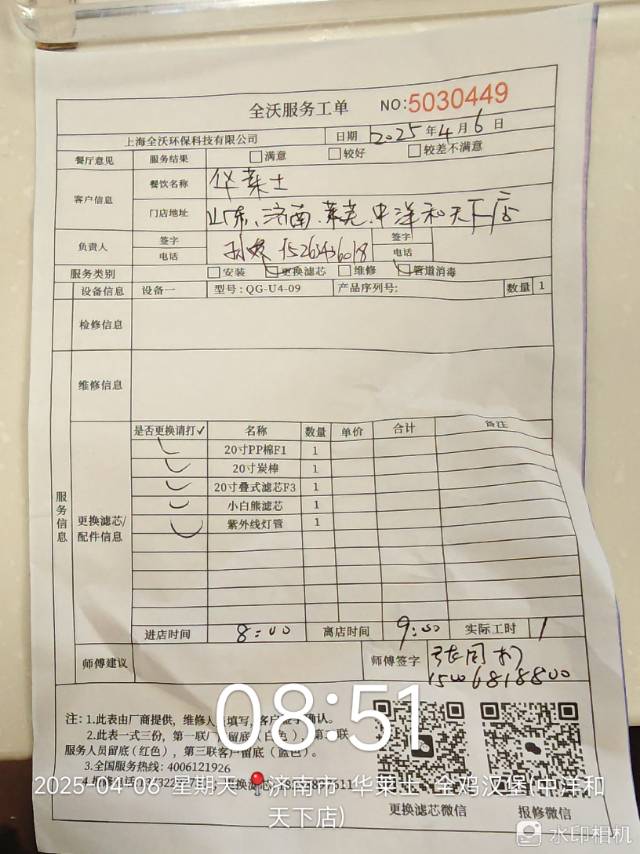 全沃服务工单 NO:5030449
上海全沃环保科技有限公司 日期 2025年4月6日
餐厅意见 服务结果 □满意 □较好 □较差不满意
客户信息 餐饮名称 华莱士
门店地址 山东、济南、莱芜、中洋和天下店
负责人 签字 电话 15263436018 签字 电话
服务类别 □安装 ☑更换滤芯 □维修 ☑管道消毒
设备信息 设备一 型号:QG-U4-09 产品序列号: 数量 1
检修信息
维修信息
服务信息
更换滤芯/配件信息
是否更换请打✓ 名称 数量 单价 合计 备注
✓ 20寸PP棉F1 1
✓ 20寸炭棒 1
✓ 20寸叠式滤芯F3 1
✓ 小白熊滤芯 1
✓ 紫外线灯管 1
进店时间 8:00 离店时间 9:00 实际工时 1
师傅建议 师傅签字
08:51
注:1.此表由厂商提供,维修人 填写,客户 确认。
2.此表一式三份,第一联 留底 联
服务人员留底(红色),第三联客户留底(蓝色)。
3.全国服务热线:4006121926
2025-04-06 星期天 济南市·华莱士·全鸡汉堡(中洋和
天下店)
更换滤芯微信 报修微信
水印相机